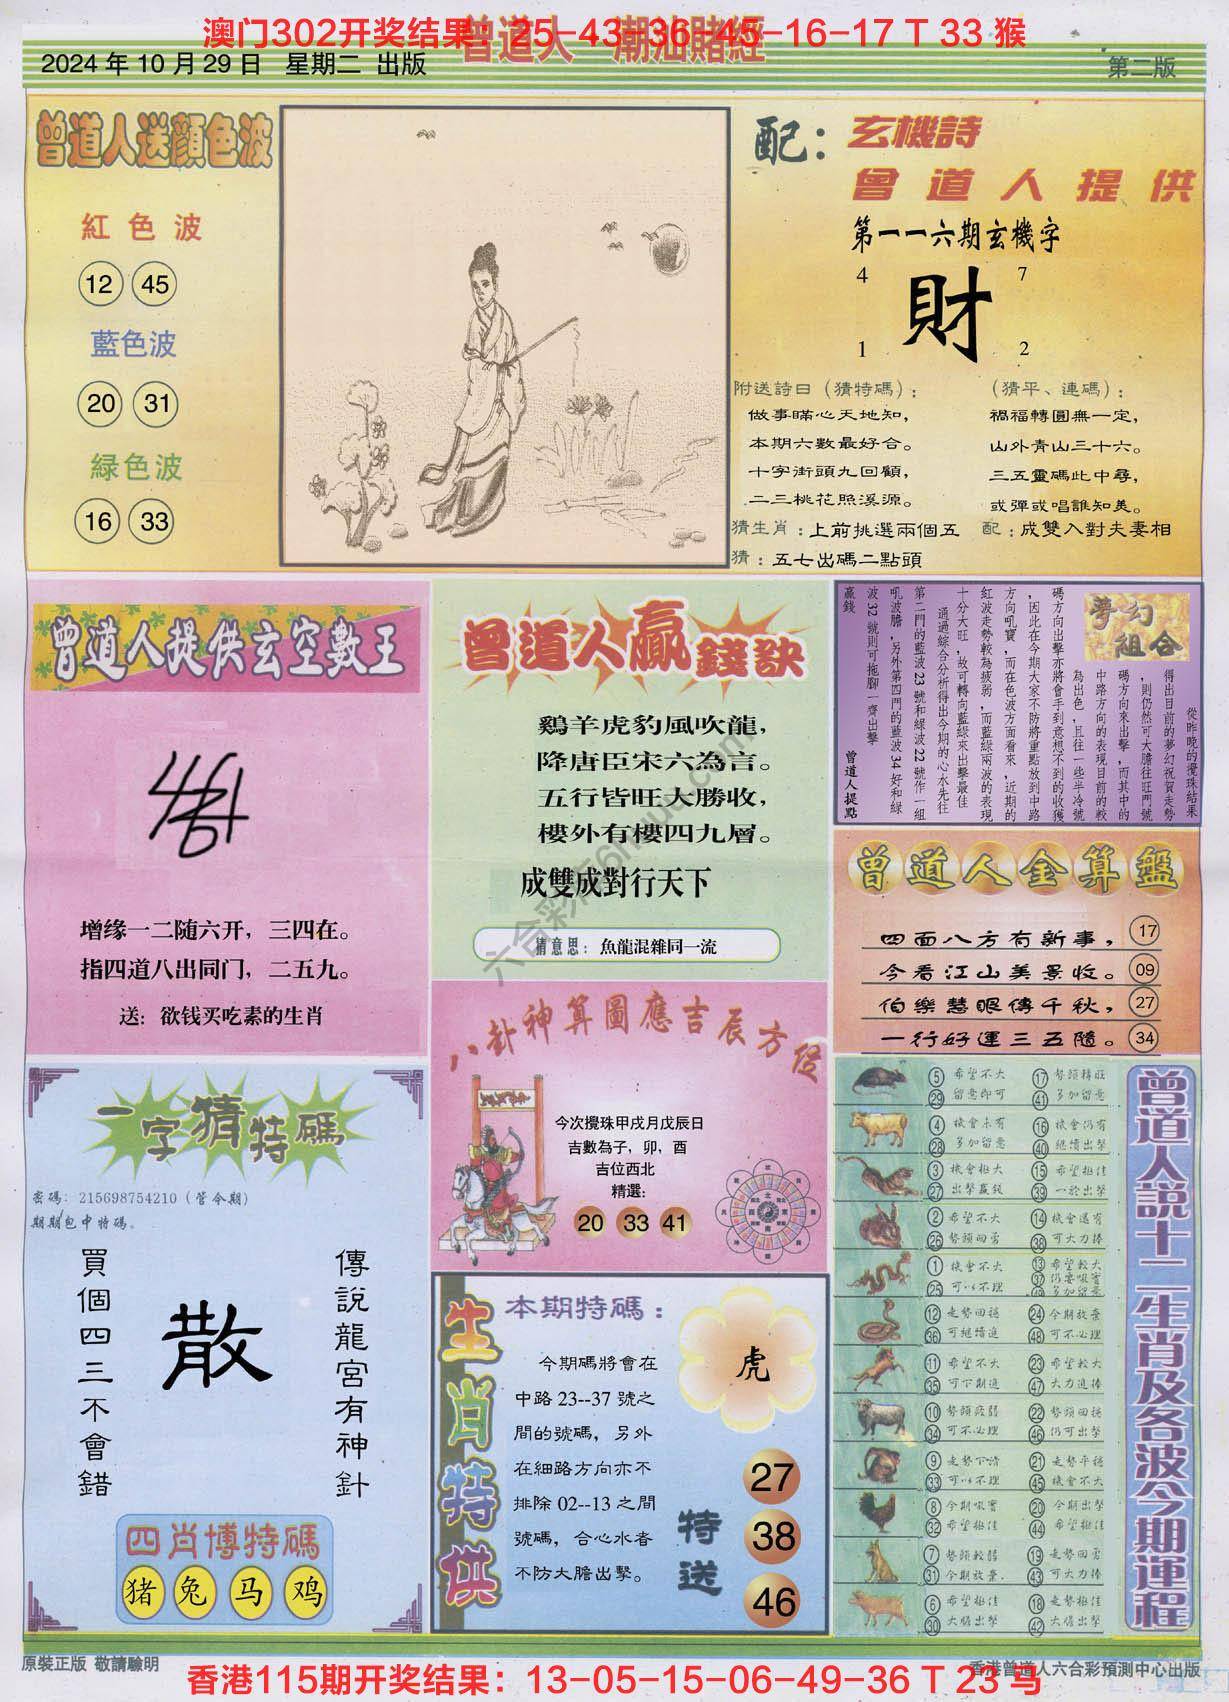 澳门302开奖结果：25-43-36-45-16-17 T 33 猴
曾道人 潮汕賭經
2024 年 10 月 29 日 星期二 出版
第二版
曾道人送顏色波
紅色波
12 45
藍色波
20 31
綠色波
16 33
配：玄機詩
曾道人提供
第一一六期玄機字
4 7
財
1 2
附送詩曰（猜特碼）：
做事瞞心天地知，
本期六數最好合。
十字街頭九回顧，
二三桃花照溪源。
（猜平、連碼）：
禍福轉圓無一定，
山外青山三十六。
三五靈碼此中尋，
或彈或唱誰知美。
猜生肖：上前挑選兩個五
配：成雙入對夫妻相
猜：五七出碼二點頭
曾道人提供玄空數王
增缘一二随六开，三四在。
指四道八出同门，二五九。
送：欲钱买吃素的生肖
曾道人贏錢訣
鷄羊虎豹風吹龍，
降唐臣宋六為言。
五行皆旺大勝收，
樓外有樓四九層。
成雙成對行天下
猜意思：魚龍混雜同一流
夢幻組合
從昨晚的攪珠結果
得出目前的夢幻祝賀走勢
，則仍然可大膽往旺門號
碼方向來出擊，而其中的
中路方向的表現目前的較
為出色，且往一些半冷號
碼方向出擊亦將會手到意想不到的收獲
，因此在今期大家不防將重點放到中路
方向吼寶，而在色波方面看來，近期的
紅波走勢較為疲弱，而藍綠兩波的表現
十分大旺，故可轉向藍綠來出擊最佳
通過綜合分析得出今期的心水先往
第二門的藍波 23 號和綠波 22 號作一組
吼波膽，另外第四門的藍波 34 好和綠
波 32 號則可拖腳一齊出擊
贏錢
曾道人提點
曾道人金算盤
四面八方有新事， 17
今看江山美景收。 09
伯樂慧眼傳千秋， 27
一行好運三五隨。 34
八卦神算圖應吉辰方位
今次攪珠甲戌月戊辰日
吉數為子，卯，酉
吉位西北
精選：
20 33 41
一字猜特碼
密碼：215698754210（管令期）
期期包中特碼。
買個四三不會錯
散
傳說龍宮有神針
四肖博特碼
猪 兔 马 鸡
生肖特供
本期特碼：
今期碼將會在
中路 23--37 號之
間的號碼，另外
在細路方向亦不
排除 02--13 之間
號碼，合心水者
不防大膽出擊。
虎
特送
27
38
46
曾道人說十二生肖及各波今期運程
5 希望不大 17 勢頭轉旺
29 留意即可 41 多加留意
4 機會未有 16 機會仍有
28 多加留意 40 繼續出擊
3 機會挺大 15 希望挺佳
27 出擊贏錢 39 一於出擊
2 希望不大 14 機會還有
26 勢頭回勇 38 可大力捧
1 機會不大 13 希望較大
25 可以不理 37 仍要吸寶
多加留意
12 走勢回穩 24 今期放棄
36 可繼續追 48 可不必理
11 希望不大 23 希望較大
35 可下期追 47 大力追捧
10 勢頭疲弱 22 勢頭回穩
34 可不必理 46 仍可出擊
9 走勢下滑 21 走勢平穩
33 可以不理 45 機會不大
8 今期吼寶 20 今期出擊
32 希望挺佳 44 希望挺佳
7 勢頭較弱 19 走勢回勇
31 今期放棄. 43 可大力捧
6 希望挺佳 18 走勢挺佳
30 大膽出擊 42 大膽出擊
原裝正版 敬請驗明
香港曾道人六合彩預測中心出版
香港115期开奖结果：13-05-15-06-49-36 T 23 马